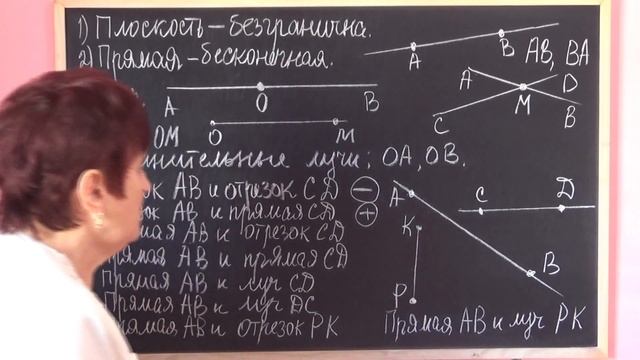 1) Плоскость – безгранична.
2) Прямая – бесконечная.
A B AB, BA
A O B
A D M C B
ОМ O M
лучи; OA, OB.
AB и отрезок CD –
AB и прямая CD +
AB и отрезок CD
Прямая AB и прямая CD
Прямая AB и луч CD
Прямая AB и луч DC
AB и отрезок PK
A C D
K B
P
Прямая AB и луч PK